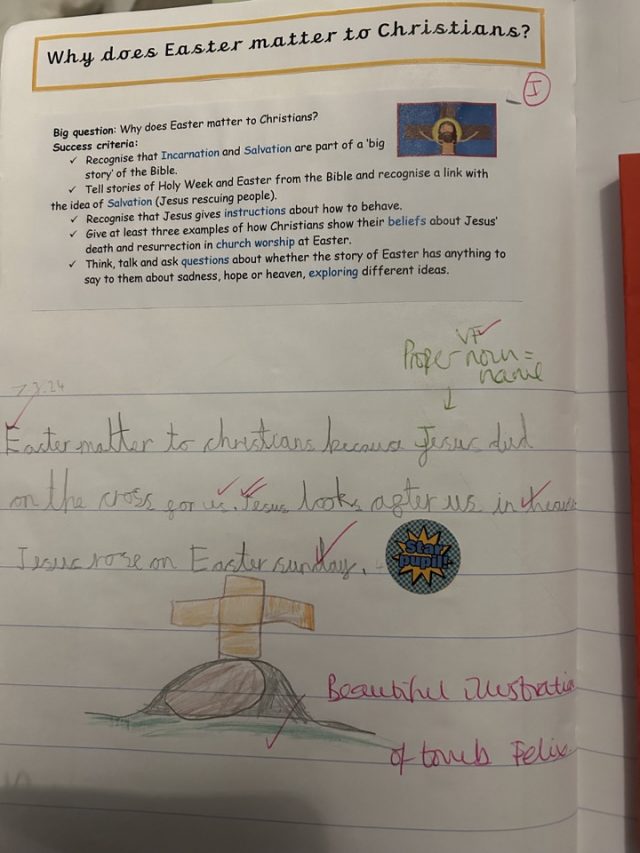 Why does Easter matter to Christians?
I
Big question: Why does Easter matter to Christians?
Success criteria:
✓ Recognise that Incarnation and Salvation are part of a 'big
story' of the Bible.
✓ Tell stories of Holy Week and Easter from the Bible and recognise a link with
the idea of Salvation (Jesus rescuing people).
✓ Recognise that Jesus gives instructions about how to behave.
✓ Give at least three examples of how Christians show their beliefs about Jesus'
death and resurrection in church worship at Easter.
✓ Think, talk and ask questions about whether the story of Easter has anything to
say to them about sadness, hope or heaven, exploring different ideas.
VF
Proper noun =
name
3.24
Easter matter to christians because Jesus died
on the cross for us. Jesus looks after us in
Jesus rose on Easter sunday.
Star
pupil!
Beautiful illustratio
of tomb Felix